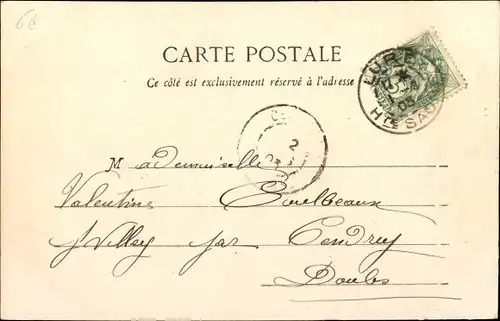 6e
CARTE POSTALE
Ce côté est exclusivement réservé à l'adresse
LURE
05
HTE SAÔ
2
Mademoiselle
Valentine
par Cendrey
Doubs